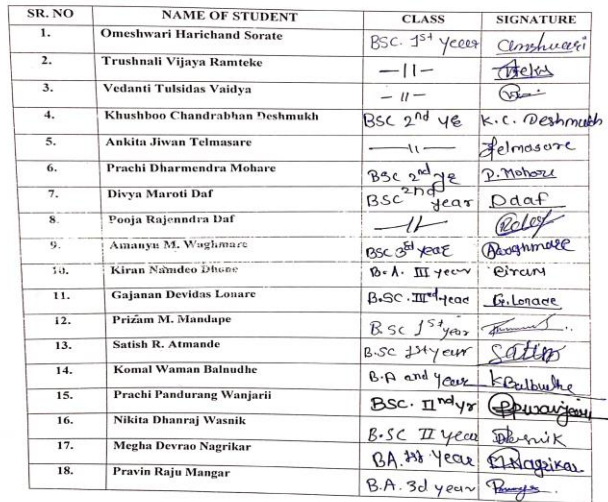 SR. NO NAME OF STUDENT CLASS SIGNATURE
1. Omeshwari Harichand Sorate BSC. 1st year Omshwari
2. Trushnali Vijaya Ramteke —11—
3. Vedanti Tulsidas Vaidya —11—
4. Khushboo Chandrabhan Deshmukh BSC 2nd ye K.C. Deshmukh
5. Ankita Jiwan Telmasare —11— Telmasare
6. Prachi Dharmendra Mohare BSC 2nd ye P. Mohare
7. Divya Maroti Daf BSC 2nd year Ddaf
8. Pooja Rajenndra Daf —11—
9. Amanya M. Waghmare BSC 3rd year Awaghmare
10. Kiran Namdeo Dhone B.A. III year
11. Gajanan Devidas Lonare B.SC. IIIrd year G. Lonare
12. Prizam M. Mandape B.SC 1st year
13. Satish R. Atmande B.SC 1st year Satish
14. Komal Waman Balnudhe B.A and year K Balbudhe
15. Prachi Pandurang Wanjarii BSC. IInd yr
16. Nikita Dhanraj Wasnik B.SC II year
17. Megha Devrao Nagrikar BA. 1st Year M Nagrikar
18. Pravin Raju Mangar B.A. 3d year